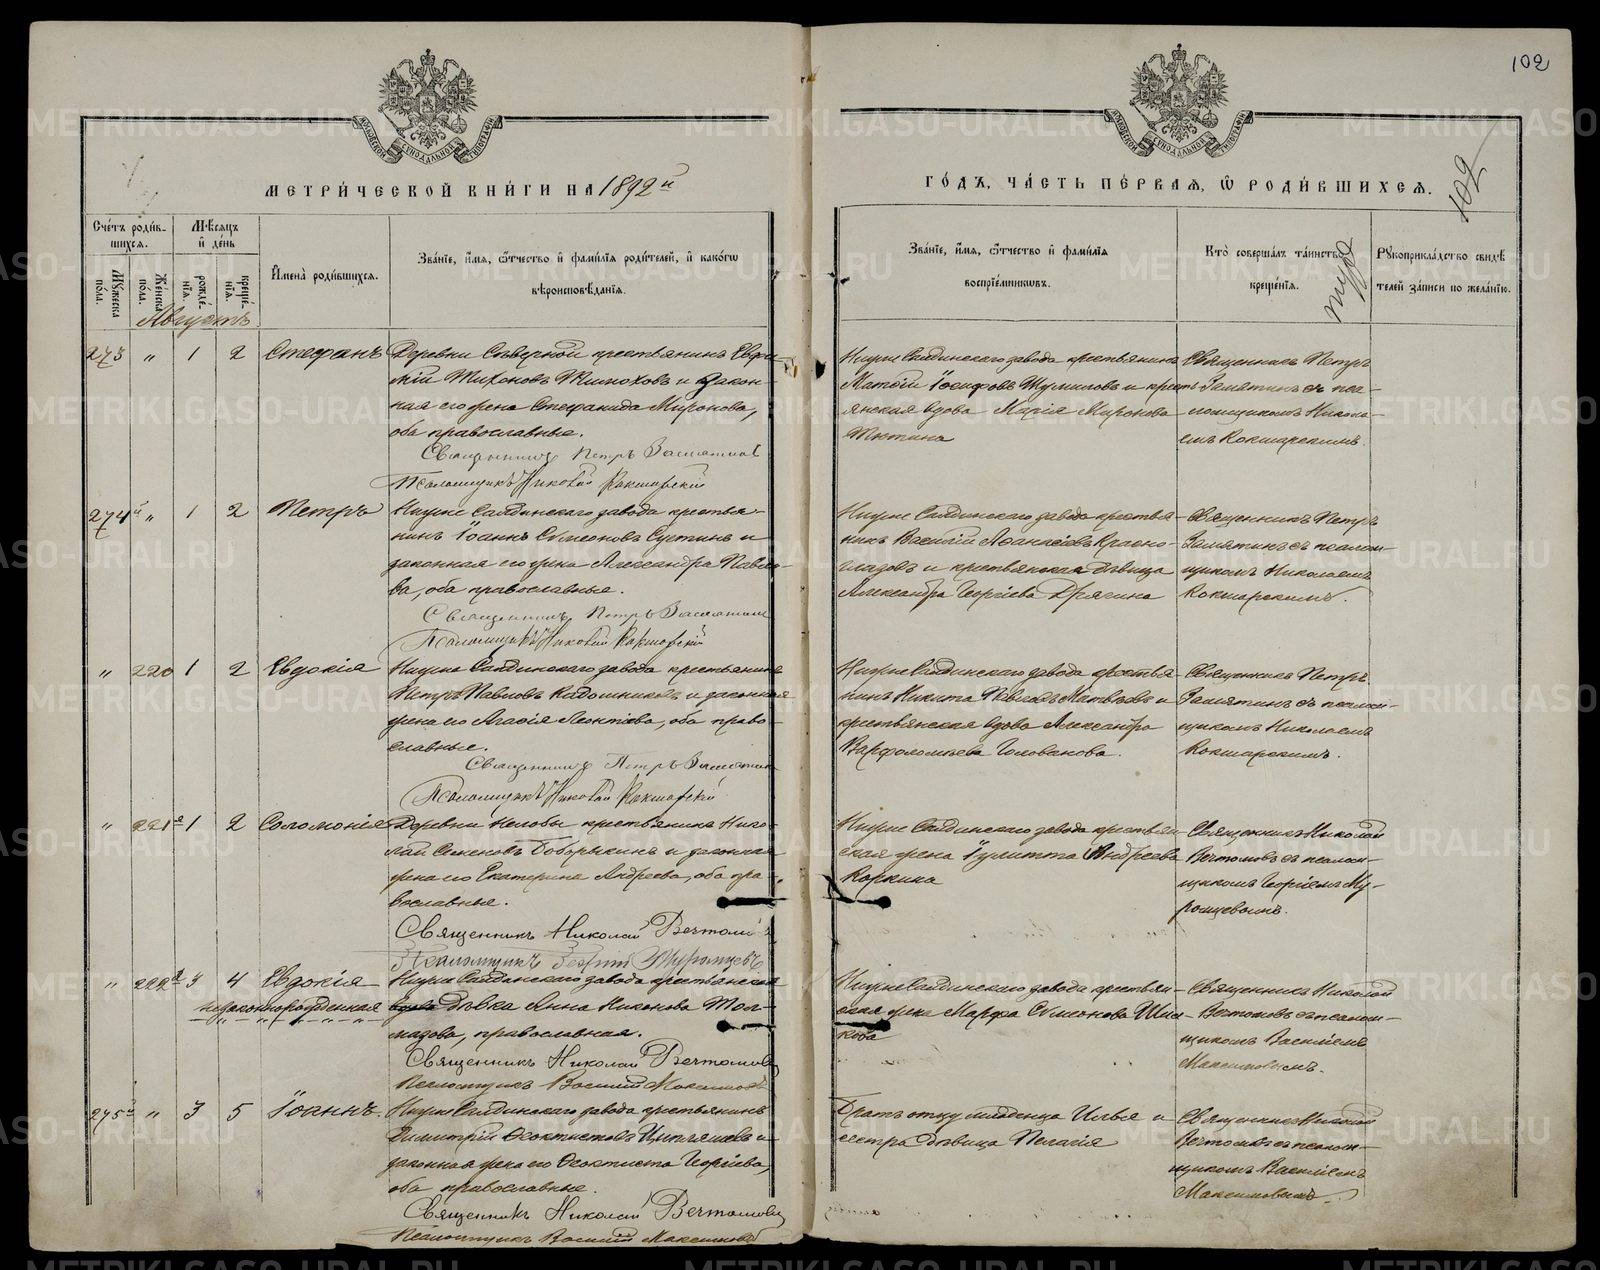 102
102
МЕТРИ́ЧЕСКОЙ КНИ́ГИ НА 1892 й
ГО́ДЪ, ЧА́СТЬ ПЕ́РВАЯ, Ѽ РОДИ́ВШИХСЯ.
Сче́тъ роди́вшихся.
Мужеска по́ла.
Женска по́ла.
Мѣсяцъ и де́нь
рожде́нїя.
креще́нїя.
И҆мена̀ роди́вшихся.
Зва́нїе, и҆́мя, ѻ҆́тчество и҆ фами́лїя роди́телей, и҆ како́гѡ
вѣроисповѣ́данїя.
Зва́нїе, и҆́мя, ѻ҆́тчество и҆ фами́лїя
воспрїе́мниковъ.
Кто̀ соверша́лъ та́инство
креще́нїя.
Рꙋкоприкла́дство свидѣ́
телей за́писи по жела́нїю.
Августъ
273 " 1 2 Стефанъ
Деревни Сѣверной крестьянинъ Евфи-
мій Тихоновъ и закон-
ная его жена Стефанида Миронова,
оба православные.
Священникъ Петръ Замятинъ
Псаломщикъ Николай Кокшарскій
Нижне Салдинскаго завода крестьянинъ
Матѳій Іосифовъ Шумиловъ и кресть-
янская вдова Марія Миронова
Тютина
Священникъ Петръ
Замятинъ съ пса-
ломщикомъ Никола-
емъ Кокшарскимъ.
274й " 1 2 Петръ
Нижне Салдинскаго завода крестья-
нинъ Іоаннъ Сѵмеоновъ Сустинъ и
законная его жена Александра Павло-
ва, оба православные.
Священникъ Петръ Замятинъ
Псаломщикъ Николай Кокшарскій
Нижне Салдинскаго завода крестья-
нинъ Василій Аѳанасіевъ Красно-
глазовъ и крестьянская дѣвица
Александра Георгіева Дрягина
Священникъ Петръ
Замятинъ съ псалом-
щикомъ Николаемъ
Кокшарскимъ.
" 220 1 2 Евдокія
Нижне Салдинскаго завода крестьянинъ
Петръ Павловъ Кадошниковъ и законная
жена его Агафія Леонтіева, оба право-
славные.
Священникъ Петръ Замятинъ
Псаломщикъ Николай Кокшарскій
Нижне Салдинскаго завода крестья-
нинъ Никита Павловъ Матвѣевъ и
крестьянская вдова Александра
Варфоломѣева Голованова.
Священникъ Петръ
Замятинъ съ псалом-
щикомъ Николаемъ
Кокшарскимъ.
" 221я 1 2 Соломонія
Деревни Нелобы крестьянинъ Нико-
лай Семеновъ Боборыкинъ и законная
жена его Екатерина Андреева, оба пра-
вославные.
Священникъ Николай Вечтомовъ
Псаломщикъ Георгій Муромцевъ
Нижне Салдинскаго завода крестьян-
ская жена Іулитта Андреева
Коркина
Священникъ Николай
Вечтомовъ съ псалом-
щикомъ Георгіемъ Му-
ромцевымъ.
" 222я 3 4 Евдокія
незаконнорожденная
Нижне Салдинскаго завода крестьянская
дѣвка Анна Никонова Тол-
мазова, православная.
Священникъ Николай Вечтомовъ
Псаломщикъ Василій Максимовъ
Нижне Салдинскаго завода крестьян-
ская жена Марфа Сѵмеонова
Священникъ Николай
Вечтомовъ съ псалом-
щикомъ Василіемъ
Максимовымъ.
275й " 3 5 Іоаннъ.
Нижне Салдинскаго завода крестьянинъ
Димитрій Ѳеоктистовъ Цыпляшевъ и
законная жена его Ѳеоктиста Георгіева,
оба православные.
Священникъ Николай Вечтомовъ
Псаломщикъ Василій Максимовъ
Братъ отцу младенца Илья и
сестра дѣвица Пелагія
Священникъ Николай
Вечтомовъ съ псалом-
щикомъ Василіемъ
Максимовымъ.